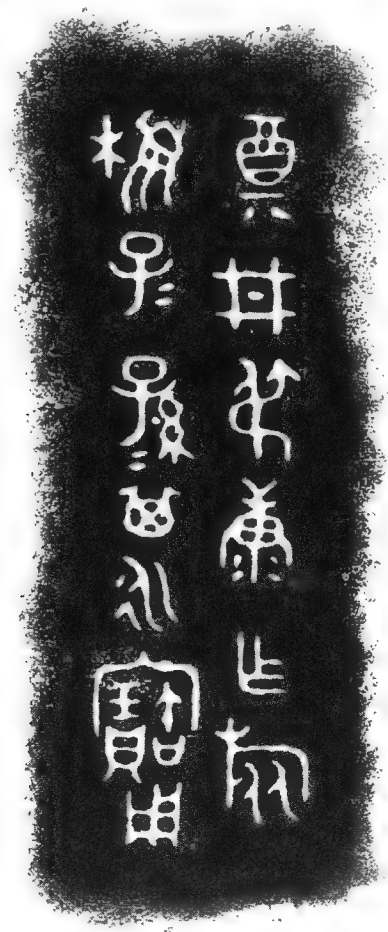 奠井叔康乍旅
盨子=孫=其永寶用